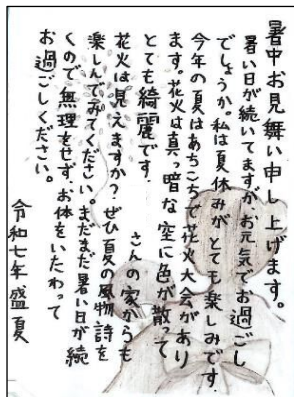 暑中お見舞い申し上げます。
暑い日が続いてますがお元気でお過ごし
でしょうか。私は夏休みがとても楽しみです。
今年の夏はあちこちで花火大会があり
ます。花火は真っ暗な空に色が散って
とても綺麗です。
さんの家からも
花火は見えますか?ぜひ夏の風物詩を
楽しんでみてください。まだまだ暑い日が続
くので無理をせず、お体をいたわって
お過ごしください。
令和七年盛夏